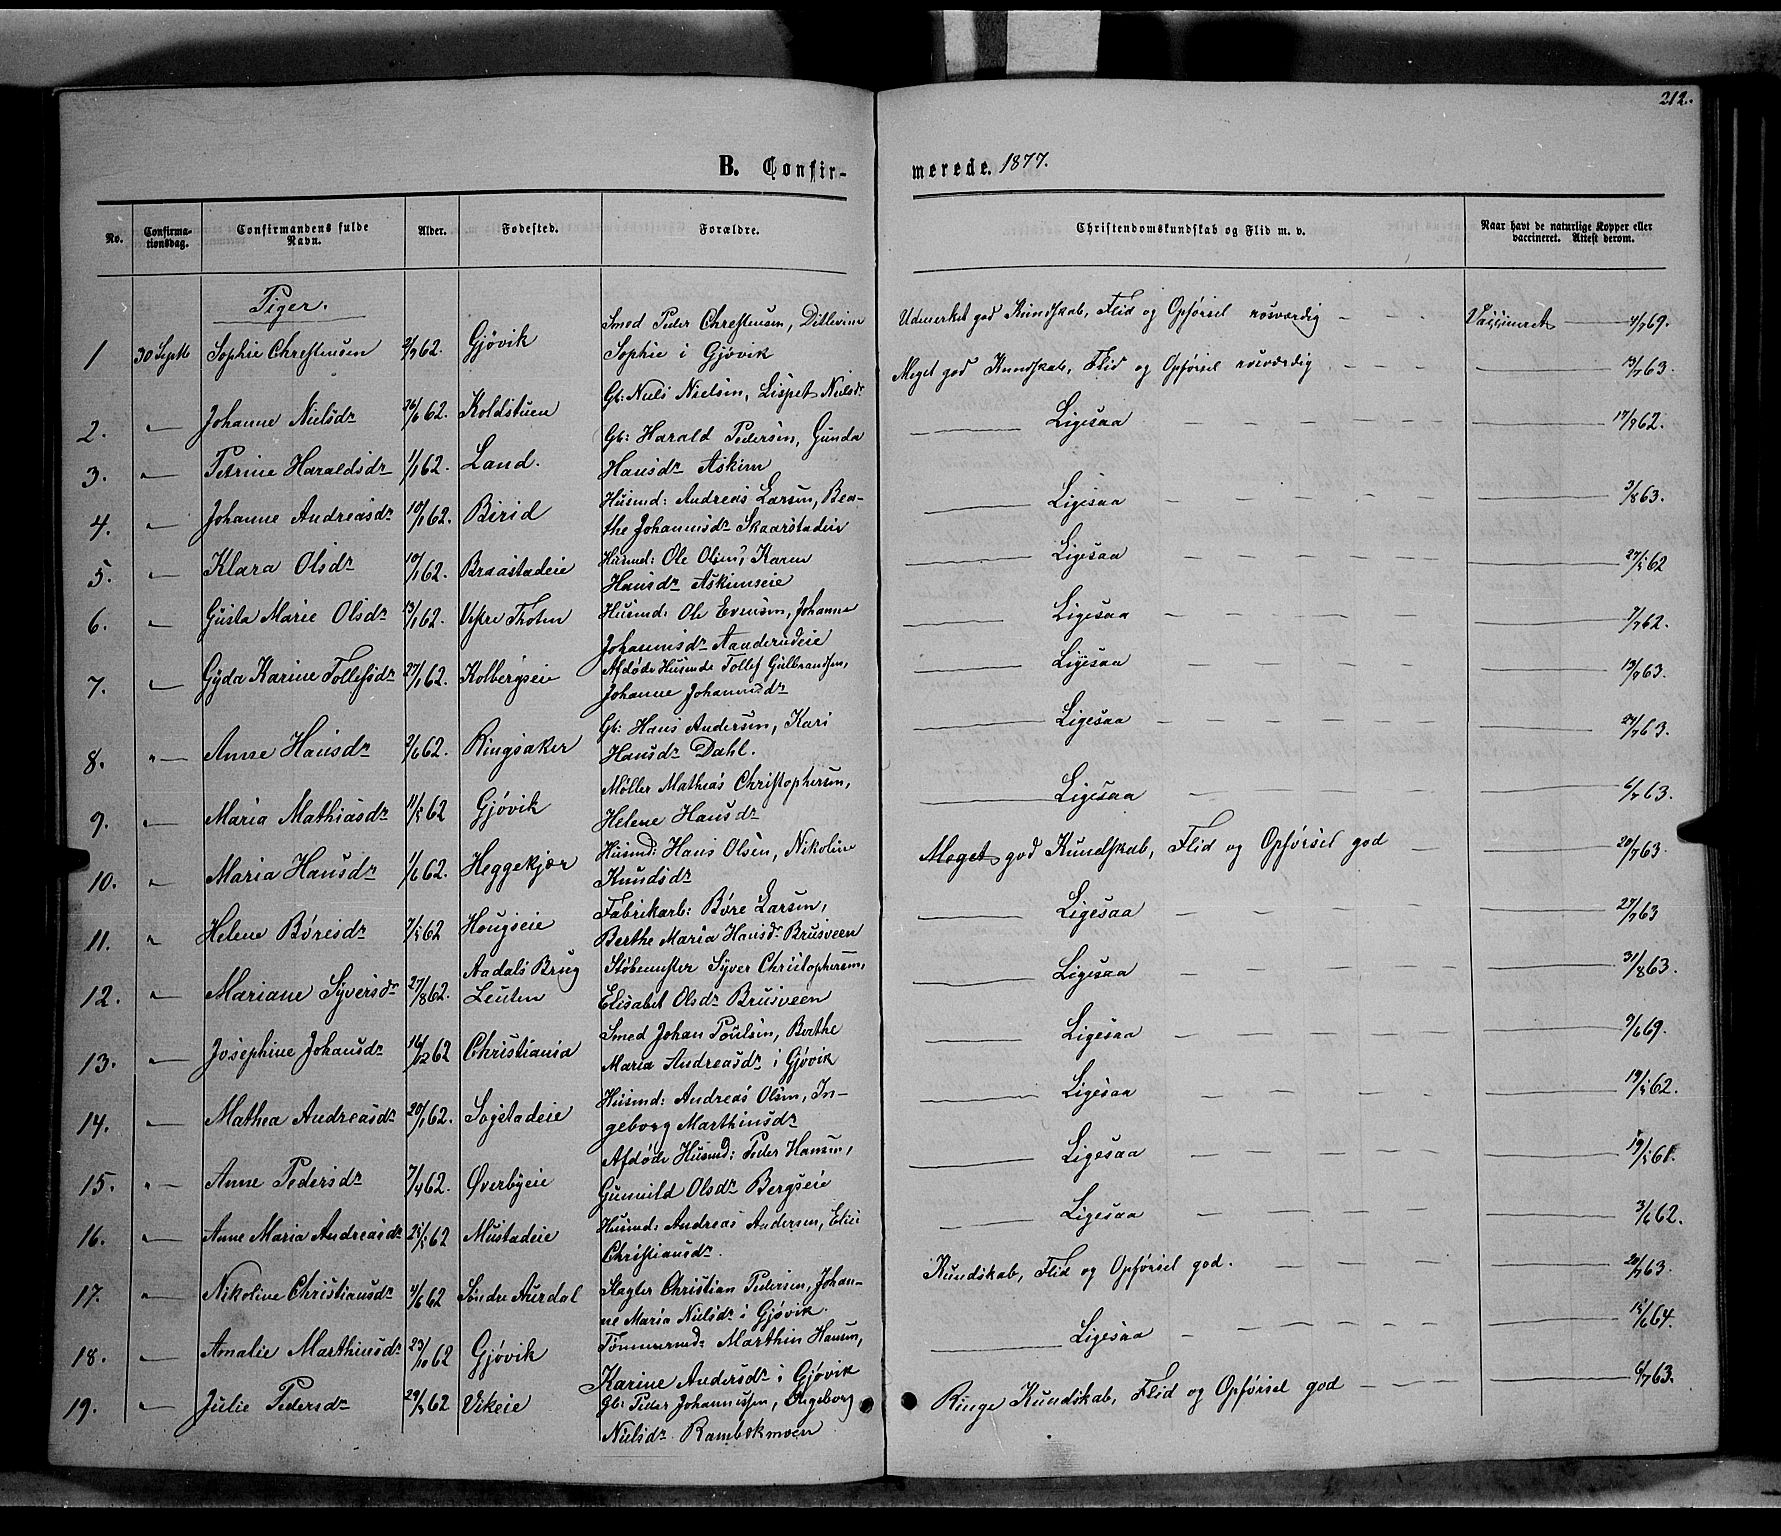 212.
B. Confir- merede. 1877.
No. Confirma-tionsdag. Confirmandens fulde Navn. Alder. Fødested. Forældre. Christendomskundskab og Flid m. v. Naar havt de naturlige Kopper eller vaccineret. Attest derom.
Piger.
1 30 Septb Sophie Christensen 2/9 62. Gjøvik
Smed Peder Christensen, Ditlevine
Sophie i Gjøvik
Udmerket god Kundskab, Flid og Opførsel rosværdig — Vaccineret — 4/9 69.
2. " — Johanne Nielsdr 26/6 62. Koldstuen
Gb: Niels Nielsen, Lispet Nielsdr
Meget god Kundskab, Flid og Opførsel rosværdig — 13/7 63.
3. " — Petrine Haraldsdr 1/1 62. Land.
Gb: Harald Pedersen, Gunda
Hansdr Askim
— Ligesaa — 17/9 62.
4. " — Johanne Andreasdr 10/1 62. Birid
Husmd: Andreas Larsen, Bea-
the Johannesdr Skaarstadeie
— Ligesaa — 3/8 63.
5. " — Klara Olsdr 10/1 62. Braastadeie
Husmd: Ole Olsen, Karen
Hansdr Askimseie
— Ligesaa — 27/5 62
6. " — Gusta Marie Olsdr 13/1 62. Vestre Thoten
Husmd: Ole Evensen, Johanne
Johannesdr Aanderudeie
— Ligesaa — 7/7 62.
7. " — Gyda Karine Tollefsdr 27/1 62. Kolbergseie
Afdøde Husmd: Tollef Gulbrandsen,
Johanne Johannesdr
— Ligesaa — 13/7 63.
8. " — Anne Hansdr 2/6 62. Ringsaker
Gb: Hans Andersen, Kari
Hansdr Dahl.
— Ligesaa — 27/7 63.
9. " — Maria Mathiasdr 11/5 62 Gjøvik
Møller Mathias Christophersen,
Helene Hansdr
— Ligesaa — 6/7 63.
10. " Maria Hansdr 1/6 62. Heggekjær
Husmd: Hans Olsen, Nikoline
Knudsdr
Meget god Kundskab, Flid og Opførsel god — 20/7 63.
11. " Helene Børesdr 7/5 62 Hougseie
Fabrikarb: Børe Larsen,
Berthe Maria Hansdr Brusveen
— Ligesaa — 27/7 63
12. " — Mariane Syversdr 27/8 62. Aadals Brug
Leuten
Støbemester Syver Christophersen,
Elisabet Olsdr Brusveen
— Ligesaa — 31/8 63.
13. " — Josephine Johansdr 16/12 62 Christiania
Smed Johan Poulsen, Berthe
Maria Andreasdr i Gjøvik
— Ligesaa — 9/6 69.
14. " — Mathea Andreasdr 20/1 62. Sogstadeie
Husmd: Andreas Olsen, In-
geborg Marthinsdr
— Ligesaa — 19/5 62.
15. " — Anne Pedersdr 7/4 62. Øverbyeie
Afdøde Husmd: Peder Hansen,
Gunnild Olsdr Bergseie
— Ligesaa — 19/5 61.
16. " — Anne Maria Andreasdr 21/5 62 Mustadeie
Husmd: Andreas Andersen, Elise
Christiansdr.
— Ligesaa — 3/6 62.
17. " — Nikoline Christiansdr 4/6 62 Søndre Aurdal
Slagter Christian Pedersen, Johan-
ne Maria Nielsdr i Gjøvik.
Kundskab, Flid og Opførsel god. — 20/7 63.
18. " — Amalie Marthinsdr 23/10 62 Gjøvik
Tømmermd: Marthin Hansen,
Karine Andersdr i Gjøvik
— Ligesaa — 15/6 64.
19. " — Julie Pedersdr 29/5 62 Vikeie
Gb: Peder Johannessen, Ingeborg
Nielsdr. Rambekmoen
Ringe Kundskab, Flid og Opførsel god — 6/7 63.